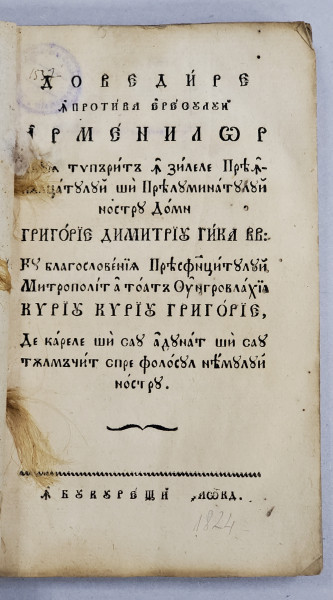 ДОВЕДИ́РЕ
ꙟ҆ПРОТИ́ВА Е҆РЕ́СꙊЛꙊЙ
А҆РМЕ́НИЛѠР
ТѶПѪРИ́ТЪ ꙟ҆ ЗИ́ЛЕЛЕ ПРѢꙟ҆-
ШИ ПРѢЛꙊМИНА́ТꙊЛꙊЙ
НО́СТРꙊ ДО́МН
ГРИГО́РІЕ ДИМИ́ТРІꙊ ГИ́КА ВВ:
КꙊ БЛАГОСЛОВЕ́НІѦ ПРѢСФИНЦИ́ТꙊЛꙊЙ
МИТРОПОЛИ́Т А҆ ТОА́ТЪ ОУ҆НГРОВЛА́ХІѦ
КѴ́РІꙊ КѴ́РІꙊ ГРИГО́РІЕ,
ДЕ КА́РЕЛЕ ШИ САꙊ А҆ДꙊНА́Т ШИ САꙊ
ТѪЛМѪЧИ́Т СПРЕ ФОЛО́СꙊЛ НѢ́МꙊЛꙊЙ
НО́СТРꙊ.
ꙟ҆ БꙊКꙊРЕ́ЩИ ҂АѠКД.
1824